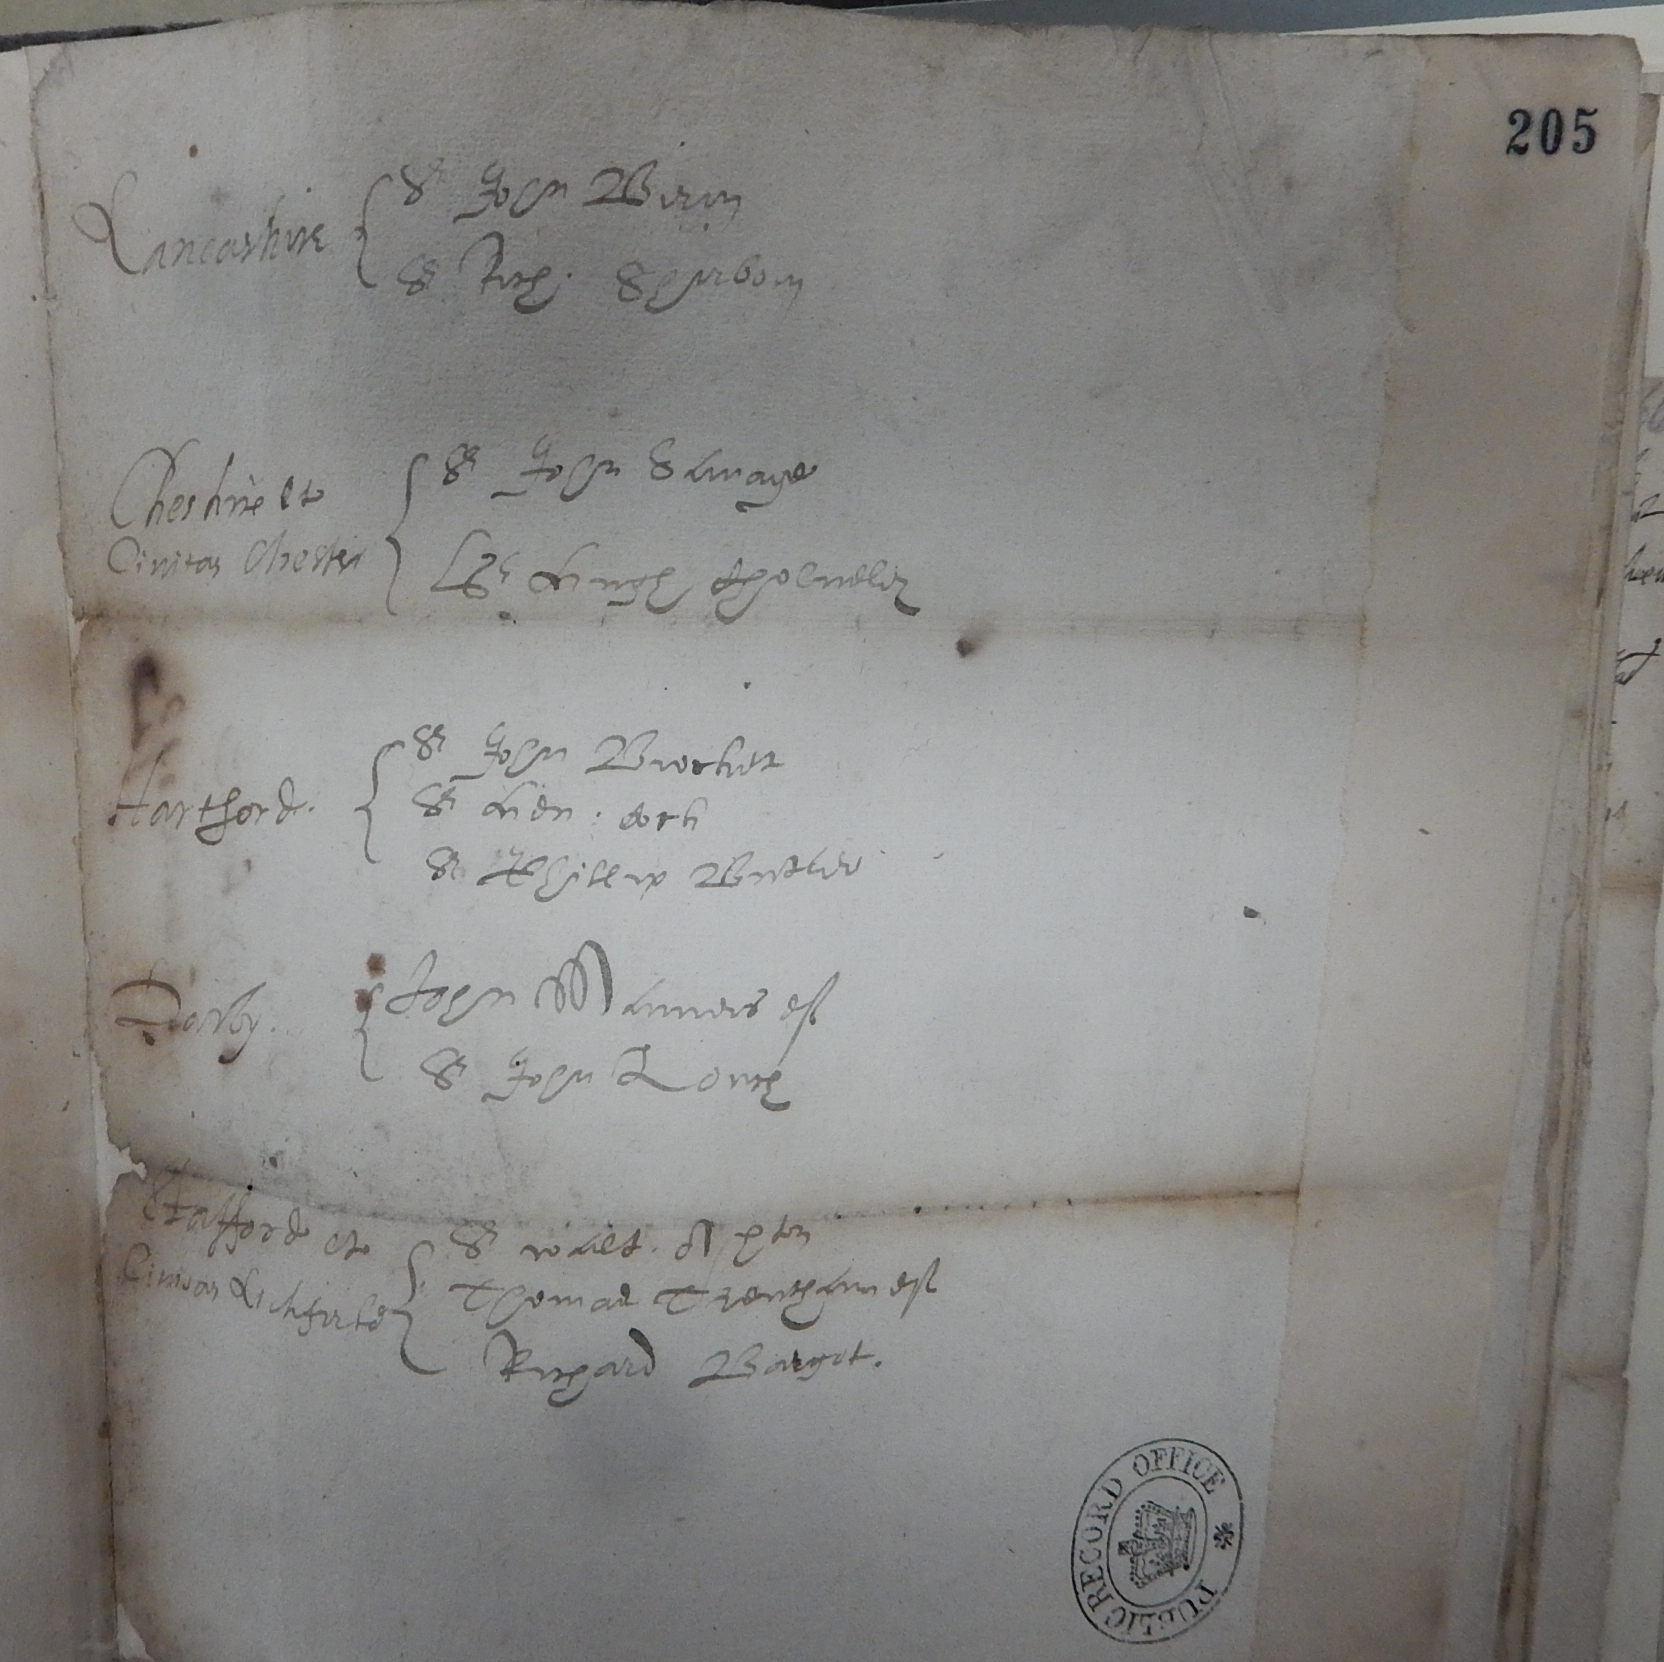 205
Lancashire { Sr John Birin
Sr Rich. Shirborn
Cheshire et
Civitas Chester { Sr John Savage
Sr Hugh Cholmeley
Hartford. { Sr John Brocket
Sr Hen: Cock
Sr Phillip Butler
Darby. { John Manners esq
Sr John Zouch
Stafford et
Civitas Lichfield { Sr Walt. Aston
Thomas Trentham esq
Richard Bagot.
PUBLIC RECORD OFFICE